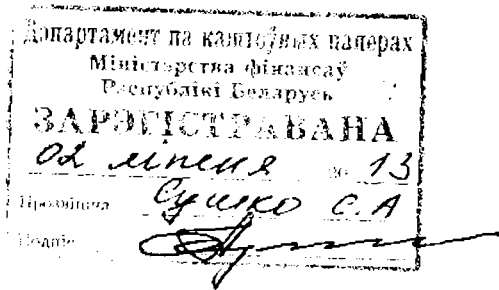 Дэпартамент па каштоўных паперах
Міністэрства фінансаў
Рэспублікі Беларусь
ЗАРЭГІСТРАВАНА
02 ліпеня 20 13
Прозвішча Сушко С.А
Подпіс